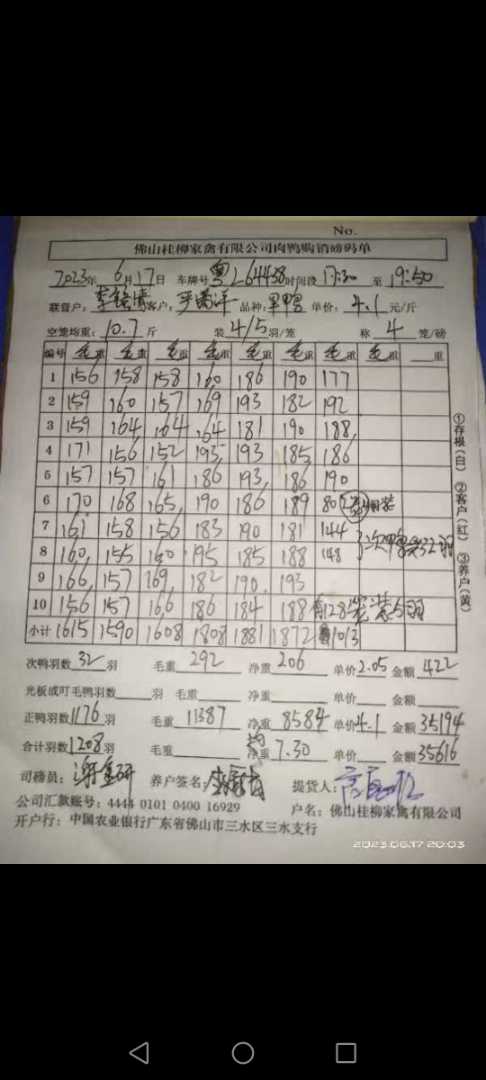 No.
佛山桂柳家禽有限公司肉鸭购销磅码单
2023年 6月17日 车牌号粤L64438时间段 17:30 至 19:50
联营户: 客户: 品种: 单价: 4.1 元/斤
空笼均重: 10.7 斤 装 4/5 羽/笼 称 4 笼/磅
编号 毛重 毛重 毛重 毛重 毛重 毛重 毛重 毛重 重
1 156 158 158 160 186 190 177
2 159 160 157 169 193 182 192
3 159 164 164 164 181 190 188
4 171 156 152 193 193 185 186
5 157 157 161 186 193 186 190
6 170 168 165 190 186 189 80
7 161 158 156 183 190 181 144
8 160 155 160 195 185 188 148
9 166 157 169 182 190 193
10 156 157 166 186 184 188 有128笼装5羽
小计 1615 1590 1608 1808 1881 1872 1013
次鸭羽数 32 羽 毛重 292 净重 206 单价 2.05 金额 422
光板或叮毛鸭羽数 羽 毛重 净重 单价 金额
正鸭羽数1176 羽 毛重 11387 净重 8584 单价4.1 金额 35194
合计羽数1208羽 毛重 均净重 7.30 单价 金额35616
司磅员: 养户签名: 提货人:
公司汇款账号: 4444 0101 0400 16929 户名: 佛山桂柳家禽有限公司
开户行: 中国农业银行广东省佛山市三水区三水支行
①存根(白) ②客户(红) ③养户(黄)
2023.06.17 20:03